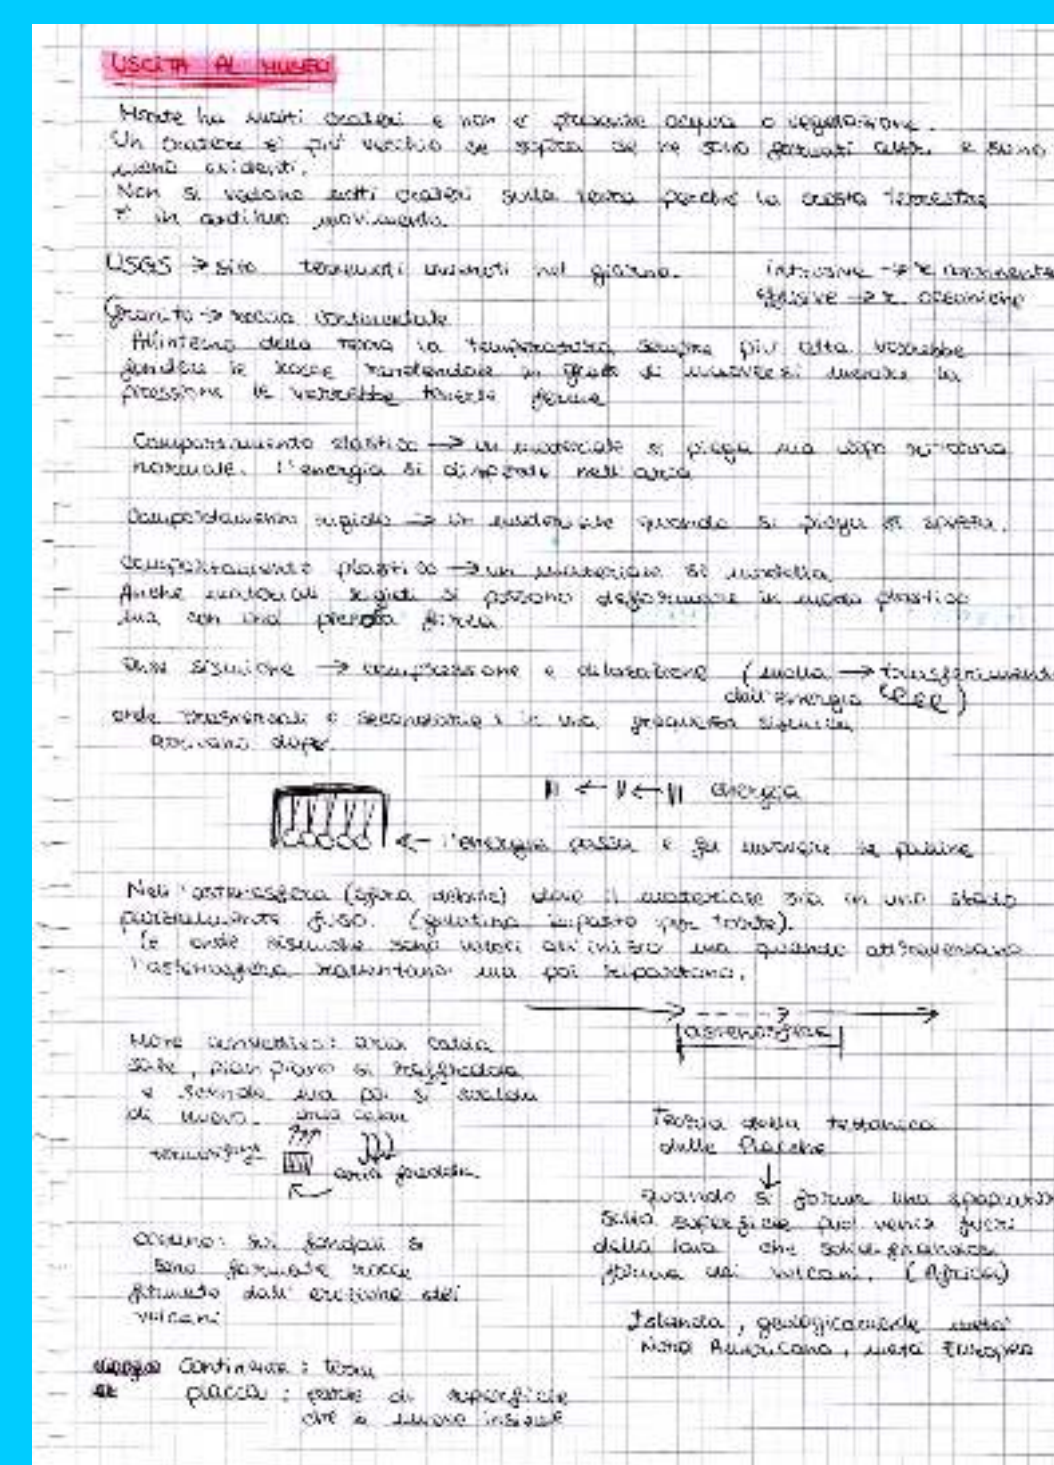 USCITA AL MUSEO
Marte ha molti crateri e non è presente acqua o vegetazione.
Un cratere è più vecchio se sopra se ne sono formati altri e sono
meno evidenti.
Non si vedono molti crateri sulla terra perché la crosta terrestre
è in continuo movimento.
USGS → sito terremoti avvenuti nel giorno.
intrusive → r. continente
effusive → r. oceaniche
Granito → roccia continentale
All'interno della terra la temperatura sempre più alta vorrebbe
fondere le rocce rendendole in grado di muoversi mentre la
pressione le vorrebbe tenere ferme
Comportamento elastico → un materiale si piega ma dopo ritorna
normale. l'energia si disperde nell'aria
Comportamento rigido → un materiale quando si piega si spezza.
Comportamento plastico → un materiale si modella
Anche materiali rigidi si possono defformare in modo plastico
ma con una piccola forza
onde sismiche → compressione e dilatazione (molla → transferimento
dell'energia)
onde trasversali o secondarie: in una frequenza sismica
arrivano dopo.
energia
← l'energia passa e fa muovere le palline
Nell'astenosfera (sfera debole) dove il materiale sta in uno stado
parzialmente fuso. (gelatina impasto per torte).
le onde sismiche sono veloci all'inizio ma quando attraversano
l'astenosfera rallentano ma poi ripartono.
astenosfera
Moti convettivi: aria calda
sale, pian piano si raffredda
e scende ma poi si scalda
di nuovo. aria calda
termosifone
aria fredda
Teoria della tettonica
delle Placche
↓
quando si forma una spaccatura
sulla superficie può venir fuori
della lava che solidificandosi
forma dei vulcani. (Africa)
oceano: sui fondali si
sono formate rocce
formate dall'eruzione dei
vulcani
Islanda, geologicamente metà
Nord Americana, metà Europea
Continente: terra
placca: parte di superficie
che si muove insieme